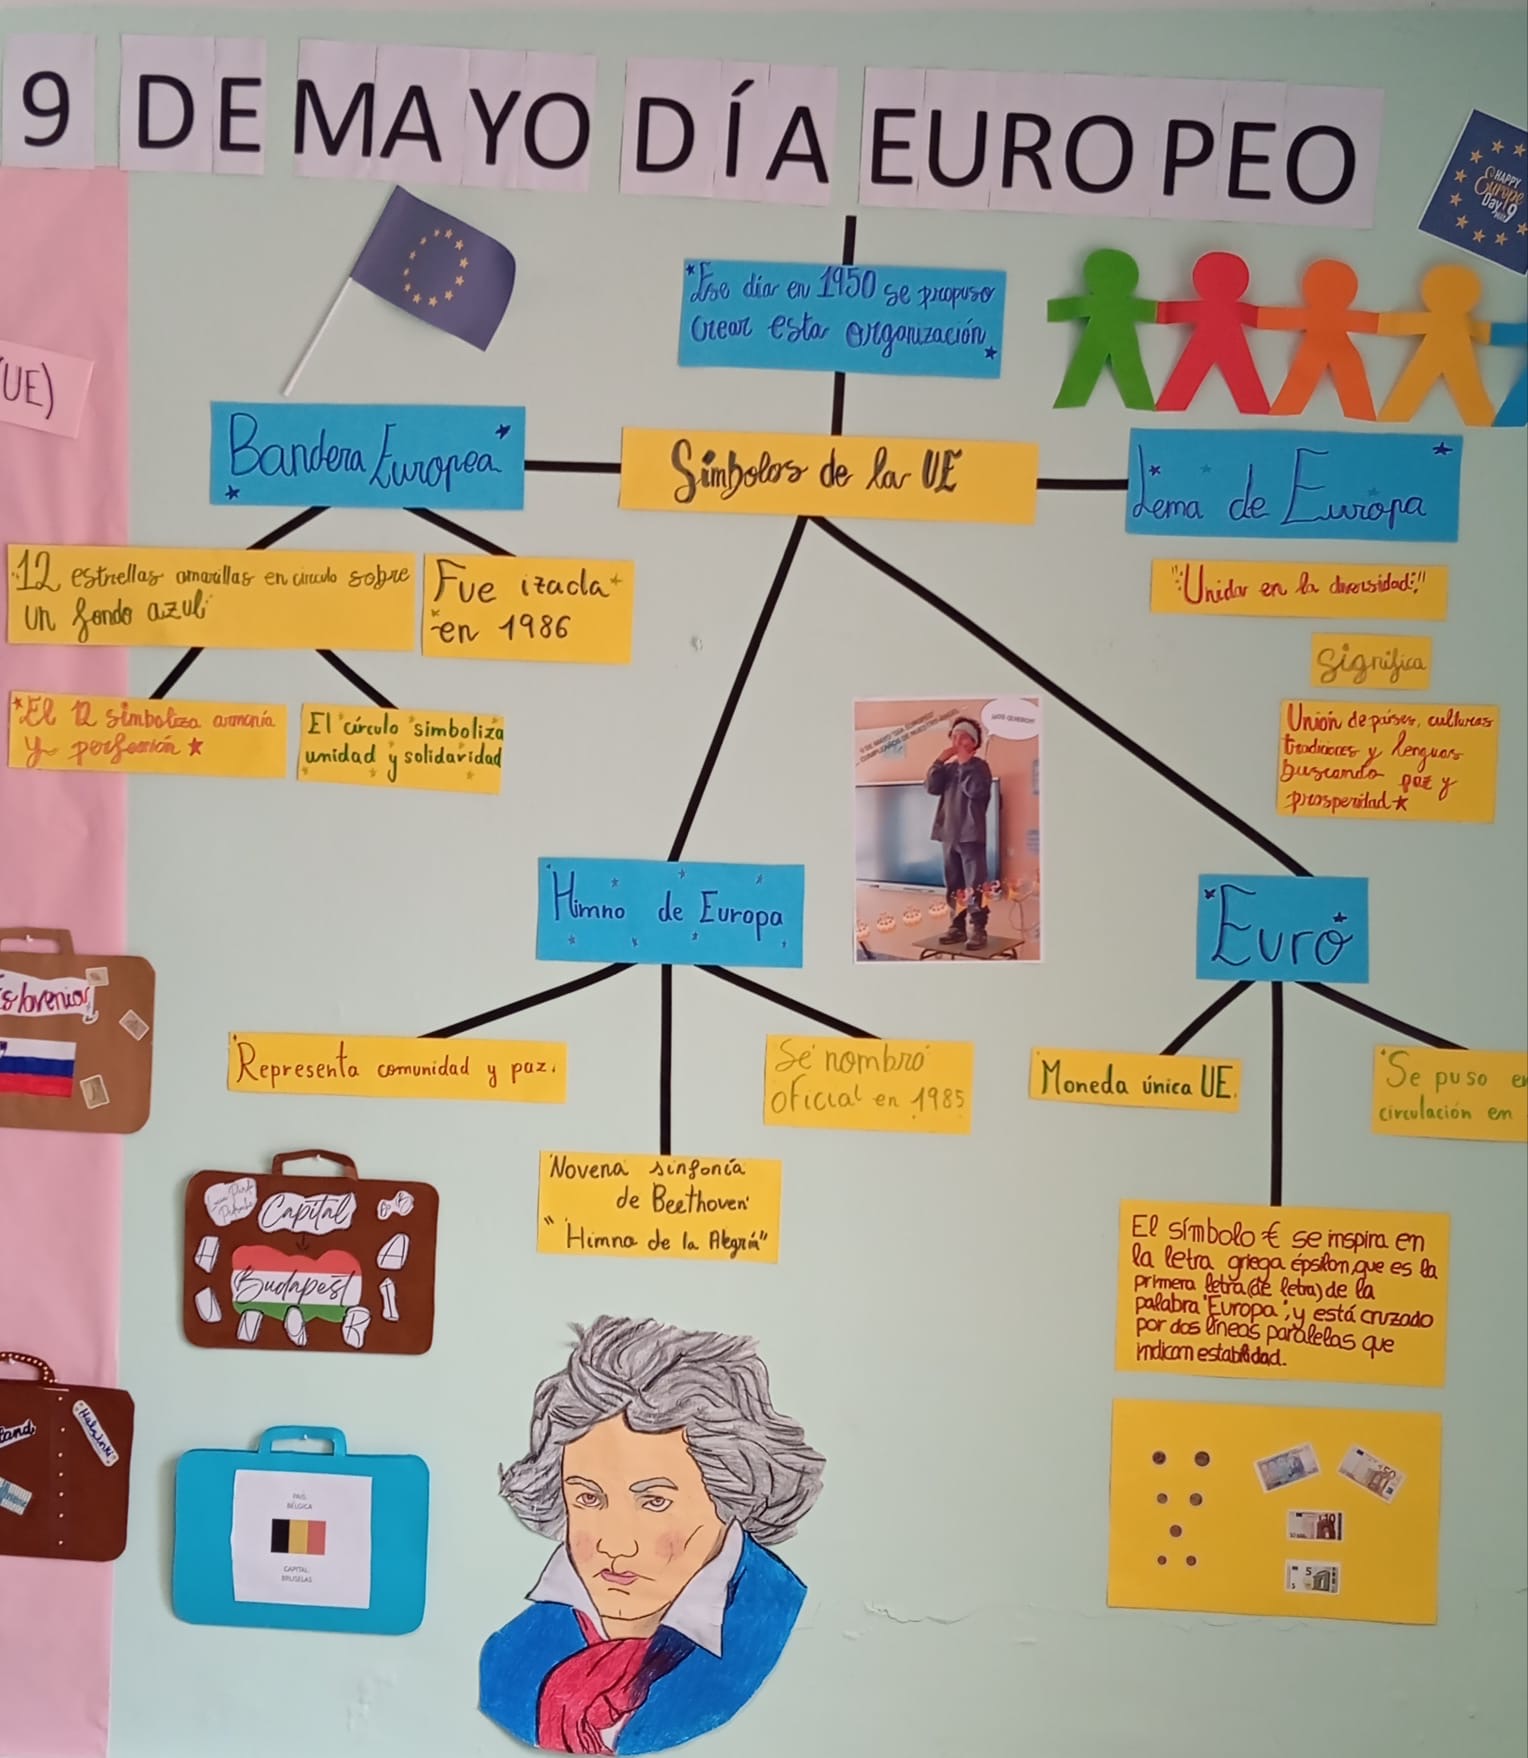 9 DE MAYO DÍA EUROPEO
HAPPY
Europe
Day! 9
Ese día en 1950 se propuso
crear esta organización
UE)
Bandera Europea
Símbolos de la UE
Lema de Europa
12 estrellas amarillas en círculo sobre
un fondo azul
Fue izada
en 1986
"Unida en la diversidad"
Significa
El 12 simboliza armonía
y perfección
El círculo simboliza
unidad y solidaridad
Unión de países, culturas
tradiciones y lenguas
buscando paz y
prosperidad
9 DE MAYO "DÍA EUROPEO"
Himno de Europa
Euro
Eslovenia
Representa comunidad y paz.
Se nombró
oficial en 1985
Moneda única UE.
Se puso en
circulación en
Novena sinfonía
de Beethoven
"Himno de la Alegría"
Capital
Budapest
H
A
U N G R I
El símbolo € se inspira en
la letra griega épsilon, que es la
primera letra (de letra) de la
palabra "Europa", y está cruzado
por dos líneas paralelas que
indican estabilidad.
land
Helsinki
PAÍS:
BÉLGICA
CAPITAL:
BRUSELAS
50
10
5